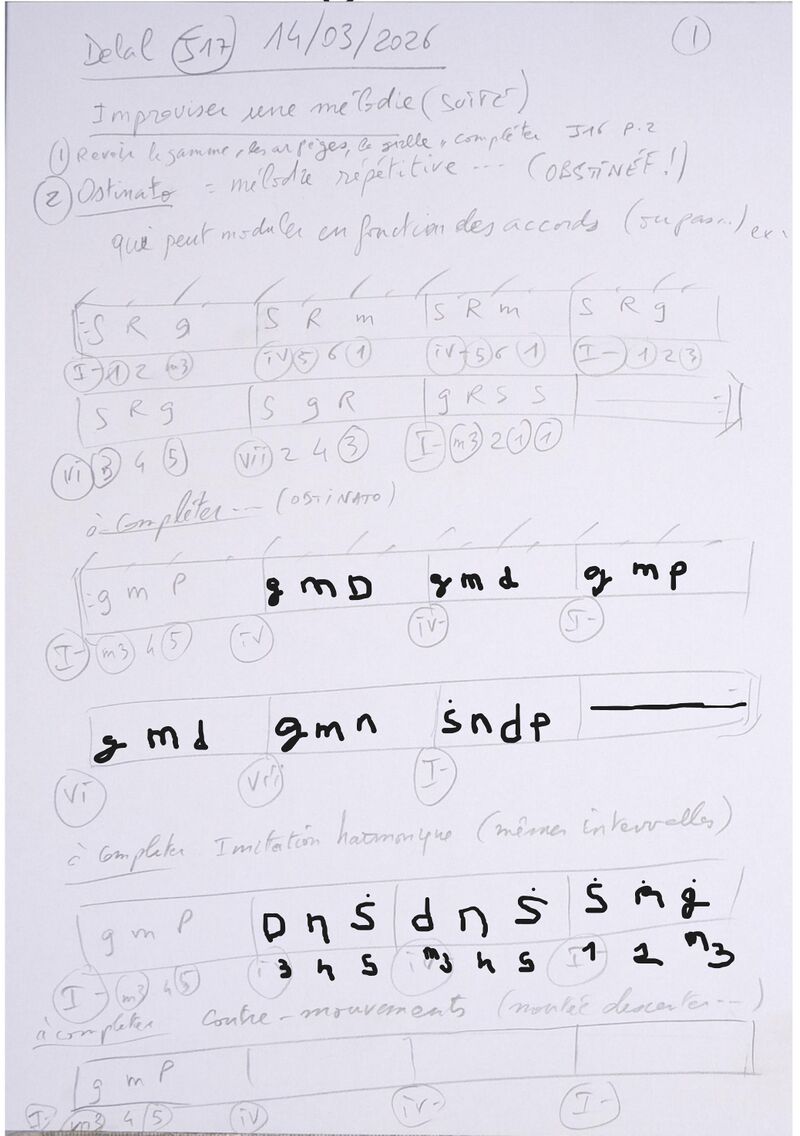 Delal J17 14/03/2026 1
Improviser une mélodie (SUITE)
1 Revoir la gamme, les arpèges, la grille, compléter J16 p.2
2 Ostinato = mélodie répétitive ... (OBSTINÉE!)
qui peut moduler en fonction des accords (ou pas...) ex.
S R g S R m S R m S R g
I- 1 2 m3 iv 5 6 1 iv- 5 6 1 I- 1 2 3
S R g S g R g R S S
vi 3 4 5 vii 2 4 3 I- m3 2 1 1
à compléter ... (OSTINATO)
g m P g m D g m d g m p
I- m3 4 5 iv iv- I-
g m d g m n ṡ n d p
vi vii I-
à compléter Imitation harmonique (mêmes intervalles)
g m P D n Ṡ d n Ṡ Ṡ ġ
I- m3 4 5 3 4 5 iv- m3 4 5 I- 1 2 m3
à compléter contre-mouvements (montée descente ...)
g m P
I- m3 4 5 iv iv- I-